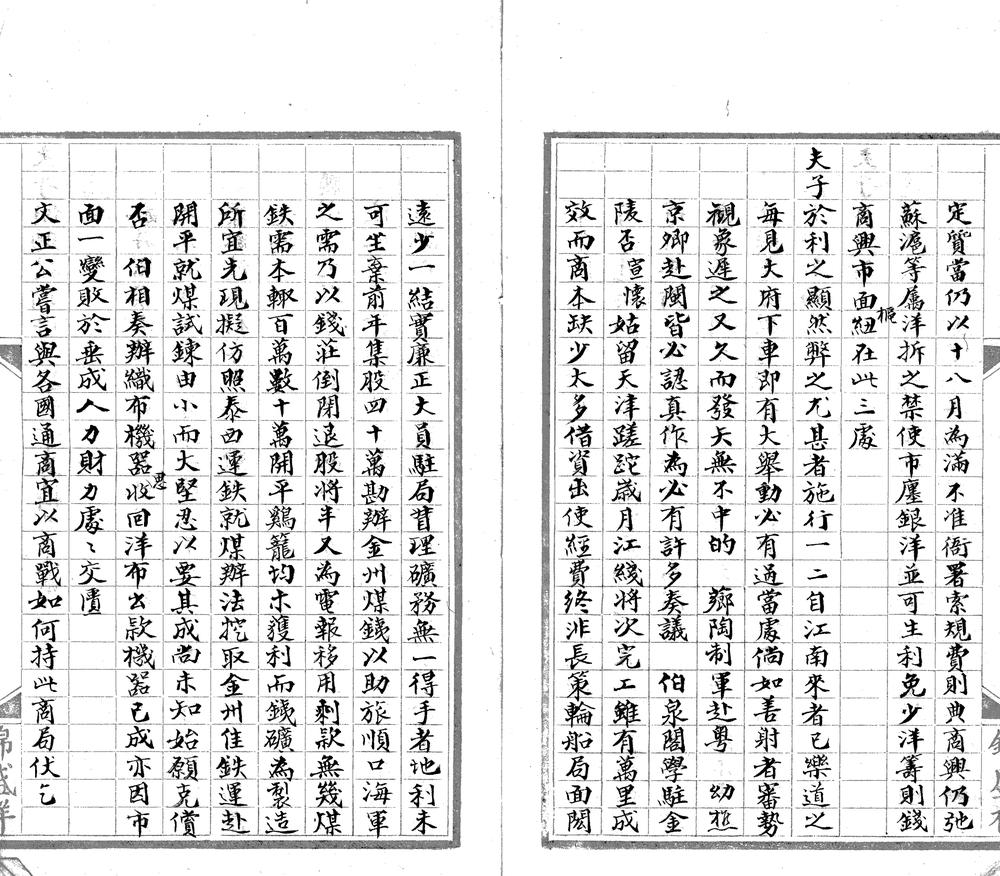 定質當仍以十八月為滿不准衙署索規費則典商興仍弛
蘇滬等屬洋拆之禁使市廛銀洋並可生利免少洋籌則錢
商興市面紐樞在此三處
夫子於利之顯然弊之尤甚者施行一二自江南來者已樂道之
每見大府下車即有大舉動必有過當處倘如善射者審勢
觀象遲之又久而發矢無不中的 薌陶制軍赴粵 幼樵
京卿赴閩皆必認真作為必有許多奏議 伯泉閣學駐金
陵否宣懷姑留天津蹉跎歲月江綫將次完工雖有萬里成
效而商本缺少太多借資出使經費終非長策輪船局面閎
遠少一結實廉正大員駐局督理礦務無一得手者地利未
可坐棄前年集股四十萬勘辦金州煤鐵以助旅順口海軍
之需乃以錢莊倒閉退股將半又為電報移用剩款無幾煤
鉄需本輒百萬數十萬開平鷄籠均未獲利而鐵礦為製造
所宜先現擬仿照泰西運鉄就煤辦法挖取金州佳鉄運赴
開平就煤試鍊由小而大堅忍以要其成尚未知始願克償
否 伯相奏辦織布機器思收回洋布出款機器已成亦因市
面一變敗於垂成人力財力處〻交潰
文正公嘗言與各國通商宜以商戰如何持此商局伏乞